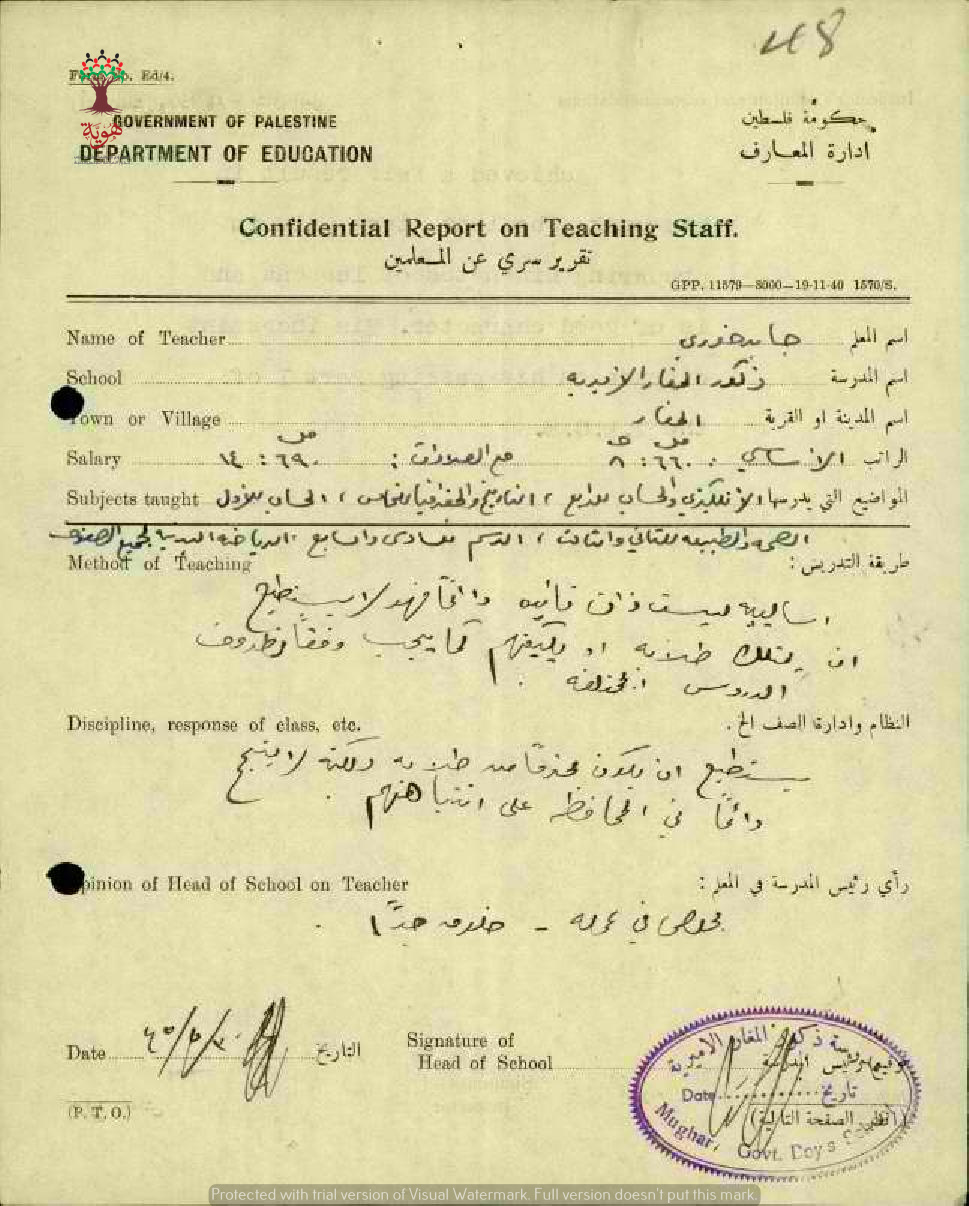 48
Form No. Ed/4.
هوية
GOVERNMENT OF PALESTINE
حكومة فلسطين
DEPARTMENT OF EDUCATION
ادارة المعارف
Confidential Report on Teaching Staff.
تقرير سري عن المعلمين
GPP. 11579—8000—19-11-40 1570/S.
Name of Teacher اسم المعلم خوري
School اسم المدرسة ذكور المغار الاميرية
Town or Village اسم المدينة او القرية المغار
Salary الراتب الاساسي مع العلاوات :
Subjects taught المواضيع التي يدرسها الانكليزي والحساب للرابع ، التاريخ والجغرافيا للخامس ، الحساب للاول
الصحة والطبيعة للثاني والثالث ، الرسم للسادس والسابع الرياضة البدنية لجميع الصفوف
Method of Teaching طريقة التدريس :
اساليبه ليست ذات تأثير دائما فهو لا يستطيع
ان يمتلك طلابه او يكيفهم كما يجب وفقا لظروف
الدروس المختلفة .
Discipline, response of class, etc. النظام وادارة الصف الخ .
يستطيع ان يكون محترما من طلابه ولكنه لا ينجح
دائما في المحافظة على انتباههم .
Opinion of Head of School on Teacher رأي رئيس المدرسة في المعلم :
مخلص في عمله - خلوق جدا .
Date التاريخ
Signature of
Head of School
رئيس المدرسة
ذكور المغار الاميرية
Date تاريخ
Mughar, Govt. Boys School
(P. T. O.)
(انظر الصفحة التالية)
Protected with trial version of Visual Watermark. Full version doesn't put this mark.